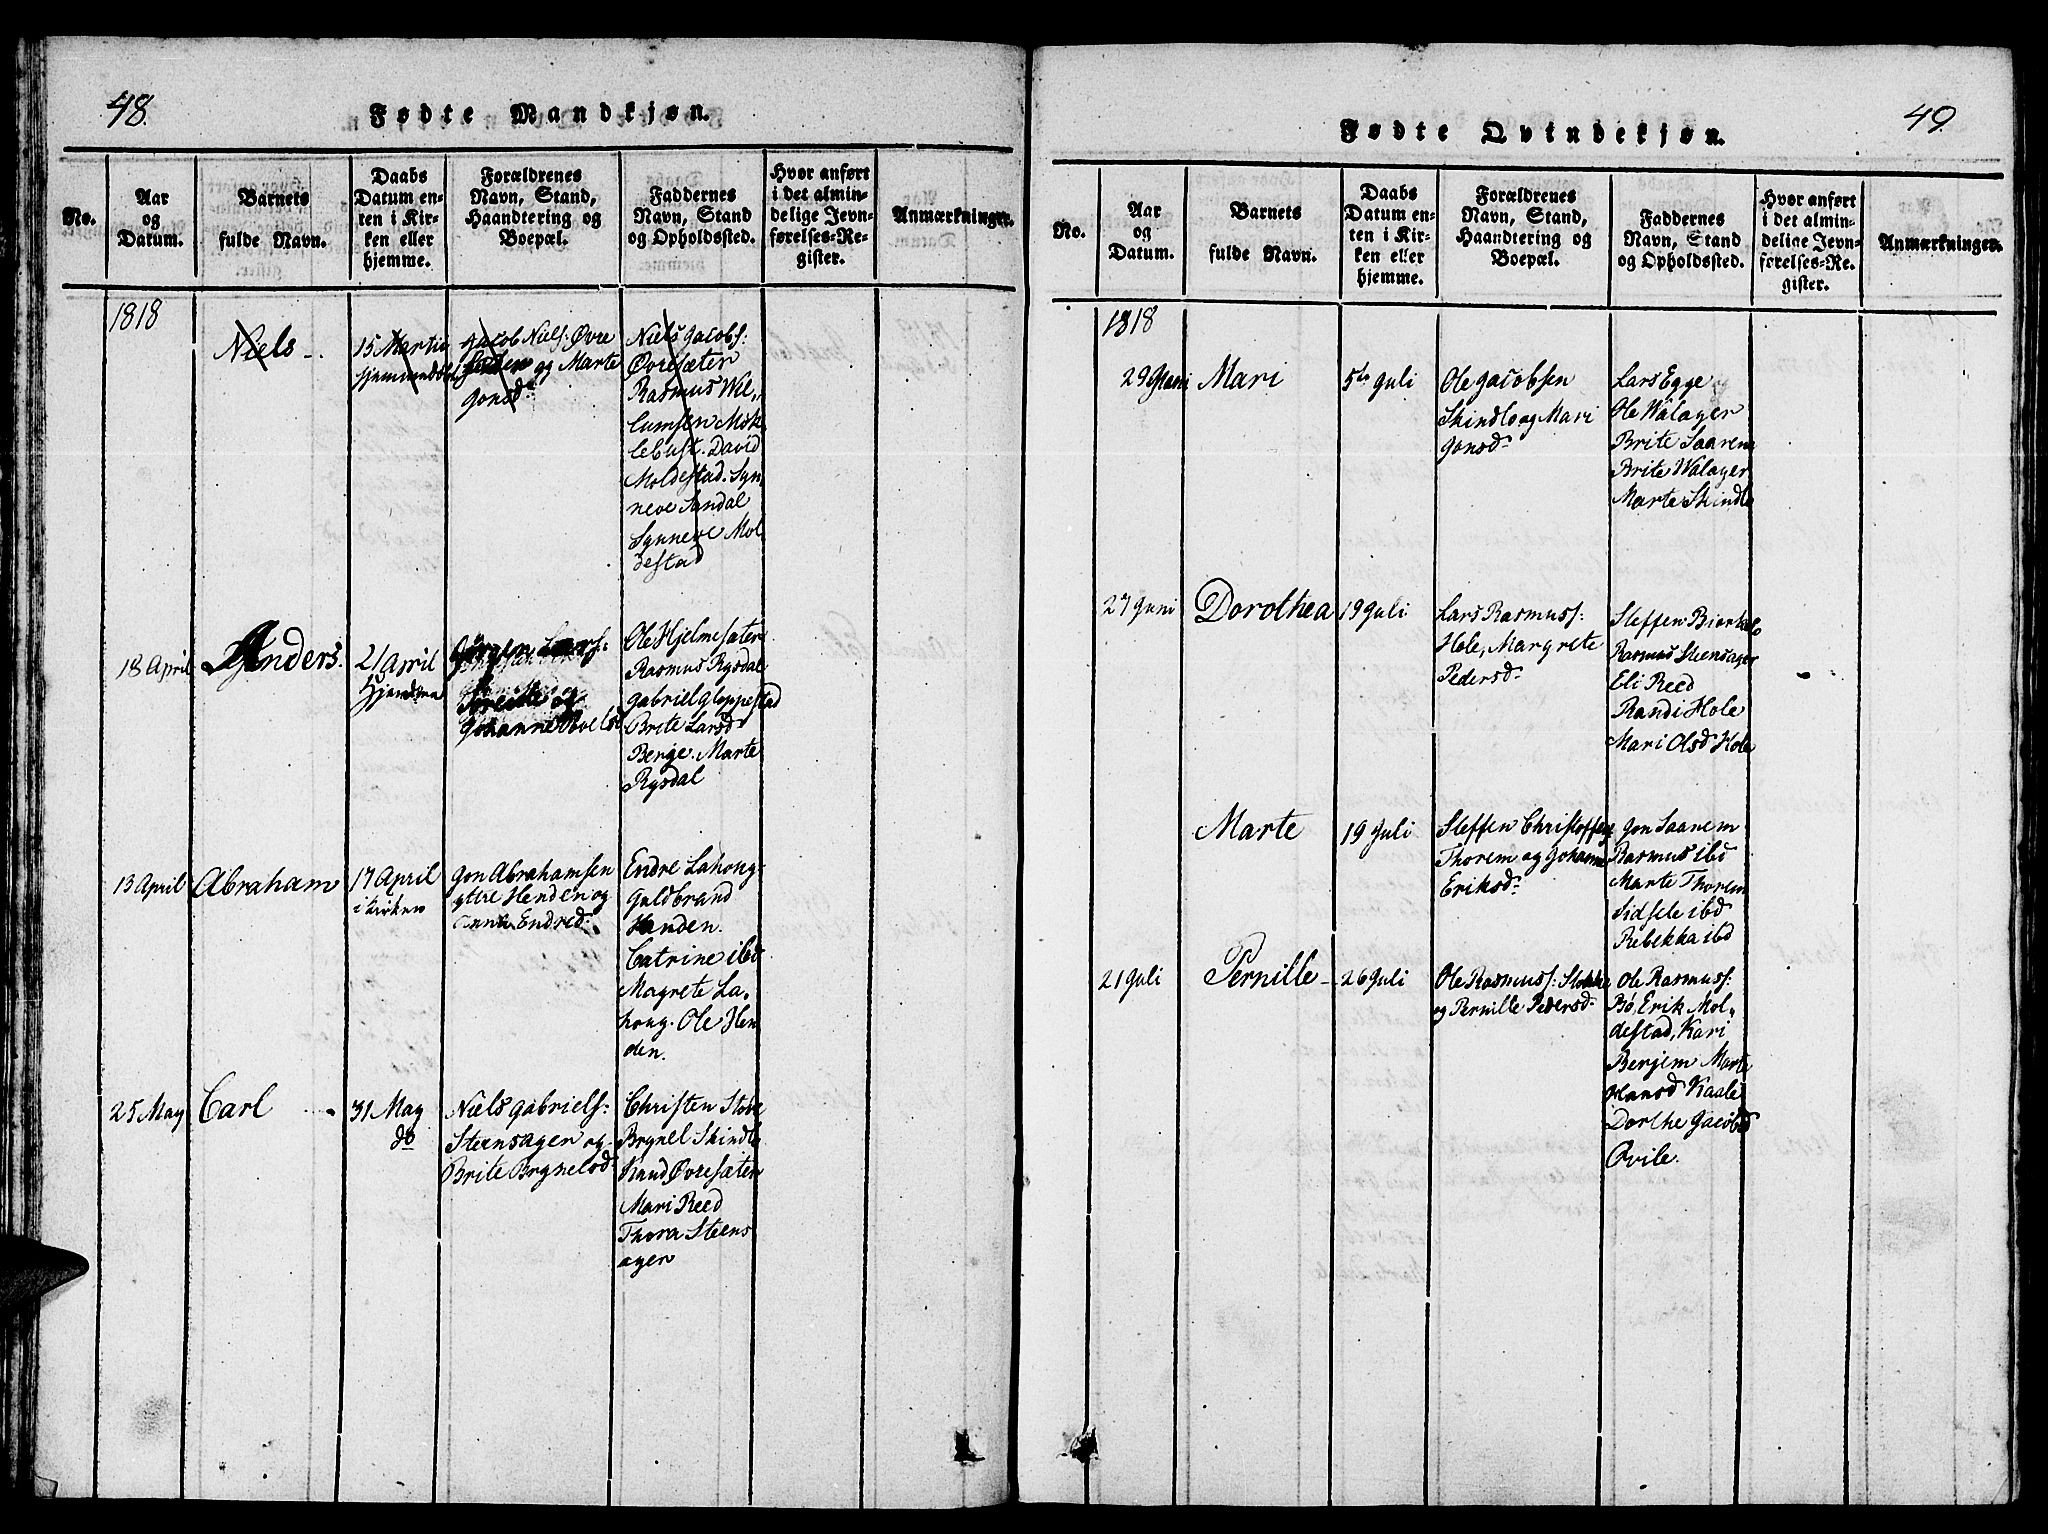 48.
Fødte Mandkjøn.
No.
Aar
og
Datum.
Barnets
fulde Navn.
Daabs
Datum en-
ten i Kir-
ken eller
hjemme.
Forældrenes
Navn, Stand,
Haandtering og
Boepæl.
Faddernes
Navn, Stand
og Opholdssted.
Hvor anført
i det almin-
delige Jevn-
førelses-Re-
gister.
Anmærkninger.
1818
Niels
15 Martii
Jacob Niels: Øvre
og Marte
Jonsd:
Niels Jacobs:
Øvresæter
Rasmus Wil„
lumsen Mok
lebust. David
Moldestad. Syn
neve Sandal
Synneve Mol
destad
18 April
Anders.
21 April
Hjemme
Jørgen Lars:
og
Johanne
Ole Hjelmesæter
Rasmus Rysdal
Gabriel Gloppestad
Brite Larsd
Berge. Marte
Rysdal
13 April
Abraham
17 April
i kirken
Jon Abrahamsen
yttre Henden og
Anna Endred:
Endre Lahong
Guldbrand
Henden.
Catrine ibd
Magrete La„
hong. Ole Hen
den.
25 May
Carl
31 May
do
Niels Gabriels:
Steensager og
Brite Brynelsd:
Christen Store
Brynel Skindlo
Knud Øvresæter
Mari Reed
Thora Steens
ager
49.
Fødte Qvindekjøn.
No.
Aar
og
Datum.
Barnets
fulde Navn.
Daabs
Datum en-
ten i Kir-
ken eller
hjemme.
Forældrenes
Navn, Stand,
Haandtering og
Boepæl.
Faddernes
Navn, Stand
og Opholdssted.
Hvor anført
i det almin-
delige Jevn-
førelses-Re-
gister.
Anmærkninger.
1818
29 Juni
Mari
5te Juli
Ole Jacobsen
Skindlo og Mari
Jonsd:
Lars Egge
Ole Walager
Brite Saarem
Brite Walager
Marte Skindlo
27 Juni
Dorothea
19 Juli
Lars Rasmuss:
Hole, Margrete
Pedersd:
Steffen Biorkelo
Rasmus Steensager
Eli Reed
Randi Hole
Mari Olsd Hole
Marte
19 Juli
Steffen Christoffers
Thorem og Johanne
Eriksd:
Jon Saanem
Rasmus ibd
Marte Thorem
Sidsele ibd
Rebekka ibd
21 Juli
Pernille
26 Juli
Ole Rasmuss:
og Pernille Pedersd:
Ole Rasmuss:
Bö, Erik Mol„
destad, Kari
Berjem Marte
Hansd Kaale
Dorthe Jacobsd
Qvile.